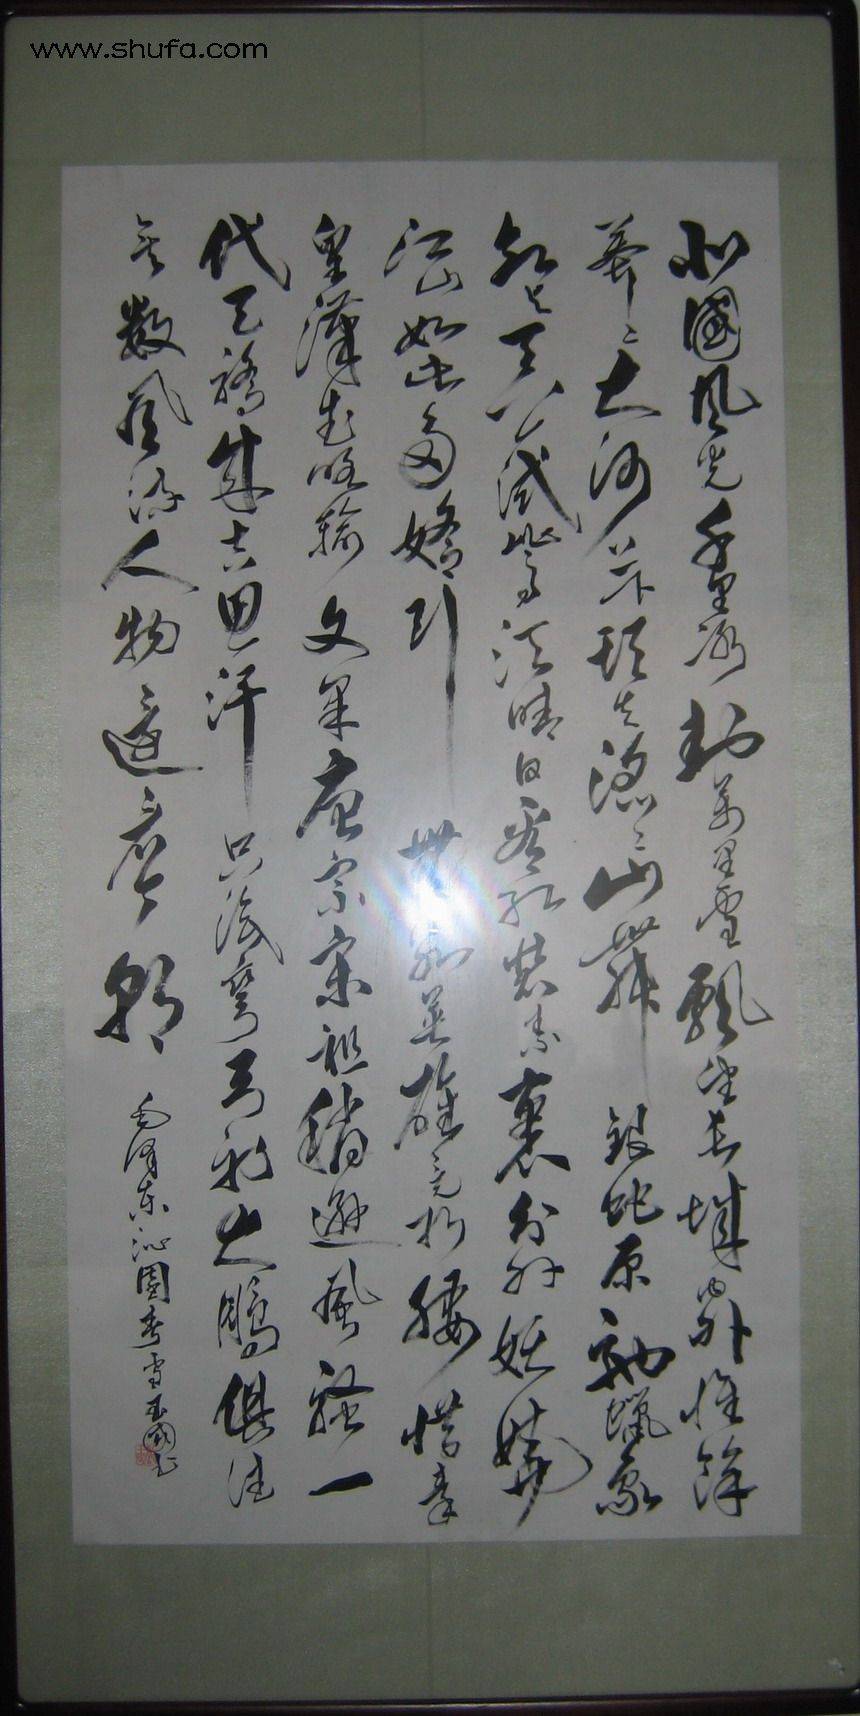 www.shufa.com
北國風光千里冰封萬里雪飄望長城內外惟餘
莽〻大河上下頓失滔〻山舞銀蛇原馳蠟象
欲與天公試比高須晴日看紅裝素裹分外妖嬈
江山如此多嬌引無數英雄競折腰惜秦
皇漢武略輸文采唐宗宋祖稍遜風騷一
代天驕成吉思汗只識彎弓射大鵰俱往
矣數風流人物還看今朝
毛泽东沁園春雪